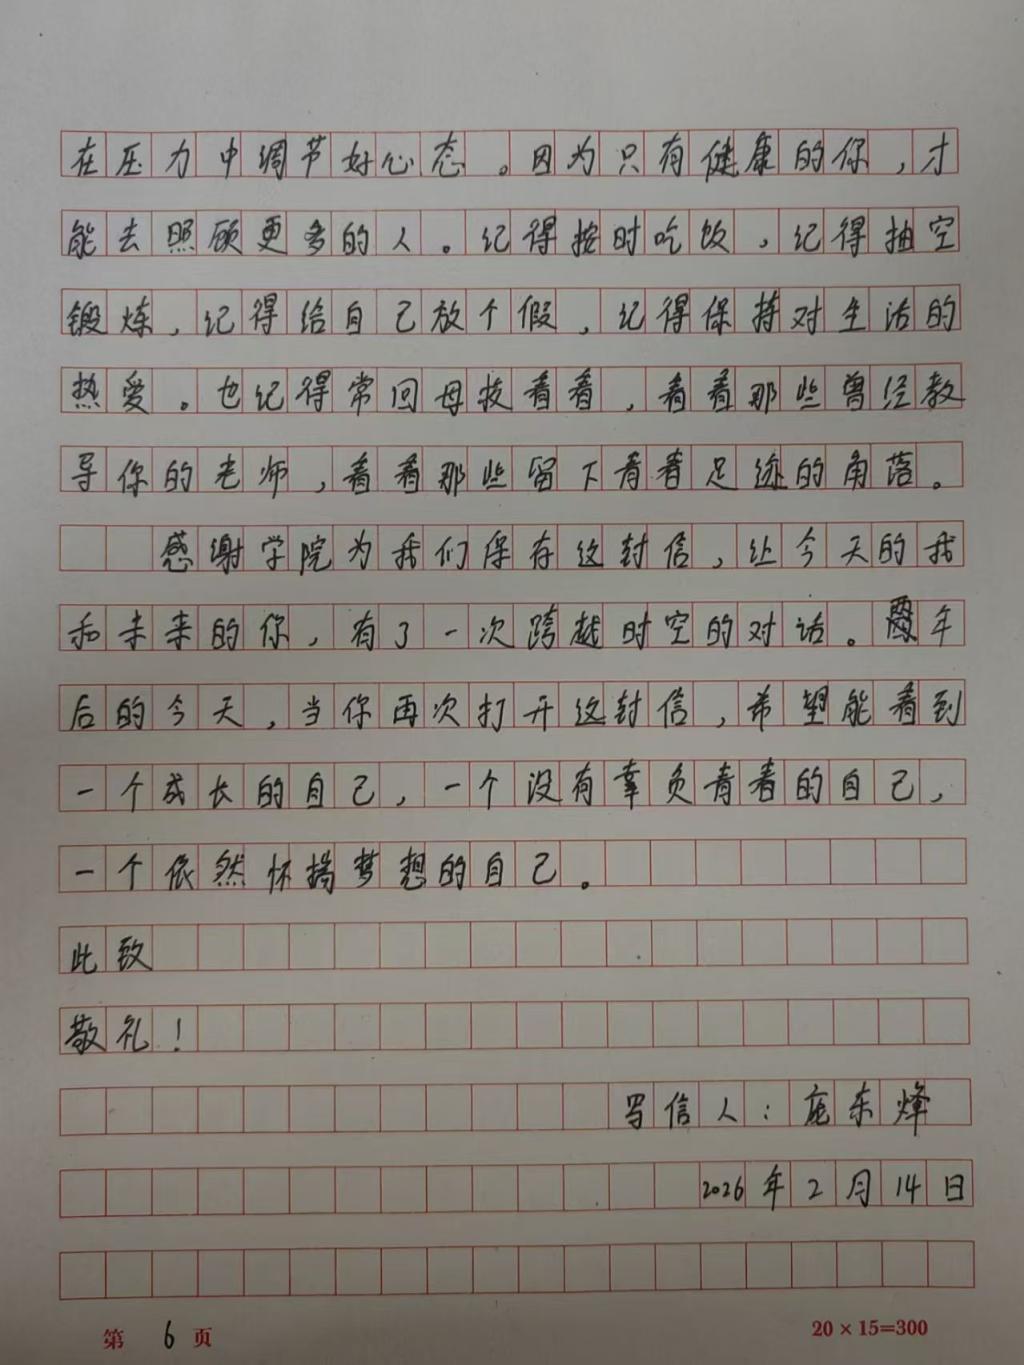 在压力中调节好心态。因为只有健康的你，才
能去照顾更多的人。记得按时吃饭，记得抽空
锻炼，记得给自己放个假，记得保持对生活的
热爱。也记得常回母校看看，看看那些曾经教
导你的老师，看看那些留下青春足迹的角落。
感谢学院为我们保存这封信，让今天的我
和未来的你，有了一次跨越时空的对话。年
后的今天，当你再次打开这封信，希望能看到
一个成长的自己，一个没有辜负青春的自己，
一个依然怀揣梦想的自己。
此致
敬礼！
写信人：庞东烽
2026年2月14日
第6页
20×15=300